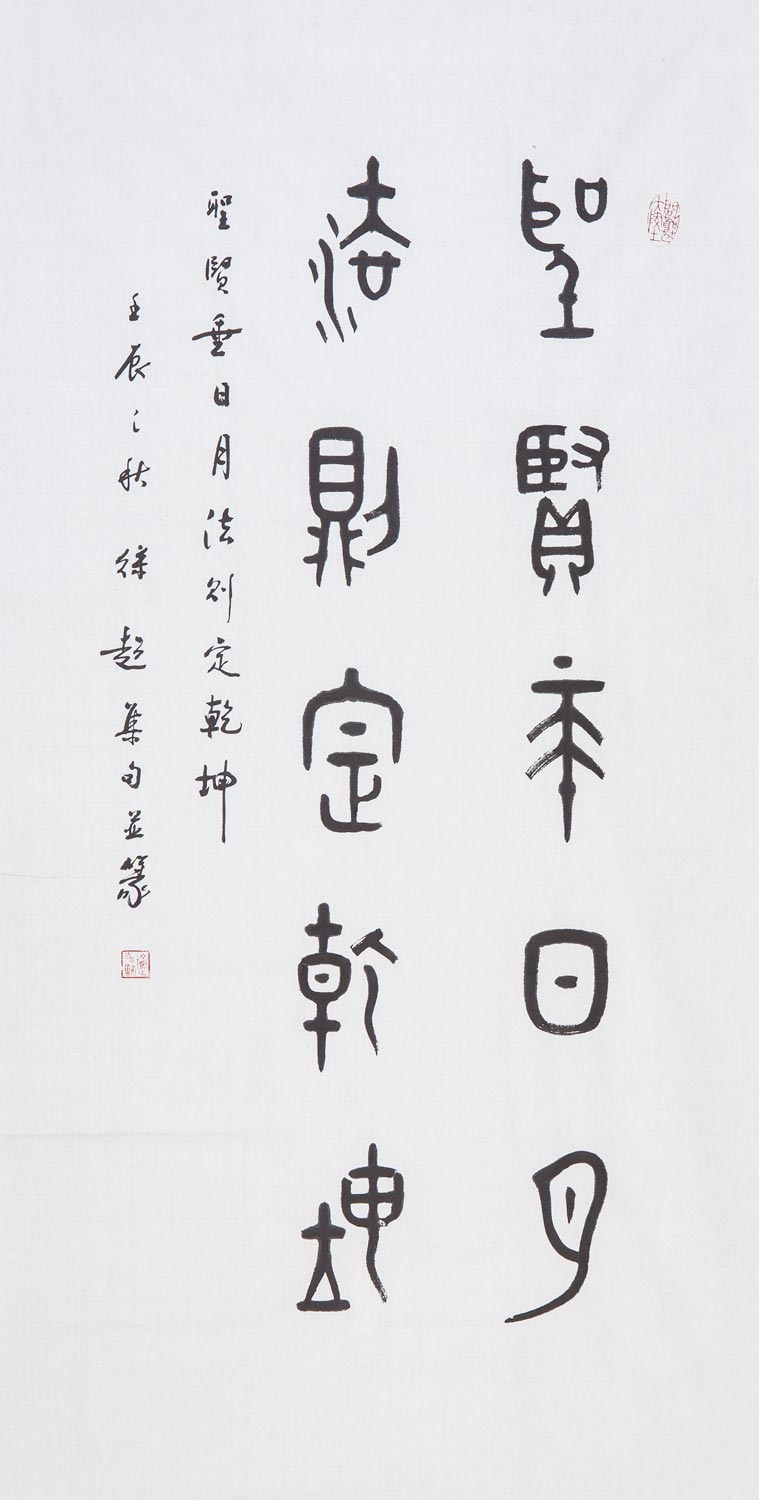 聖賢垂日月
法則定乾坤
聖賢垂日月法則定乾坤
壬辰之秋徐超集句並篆